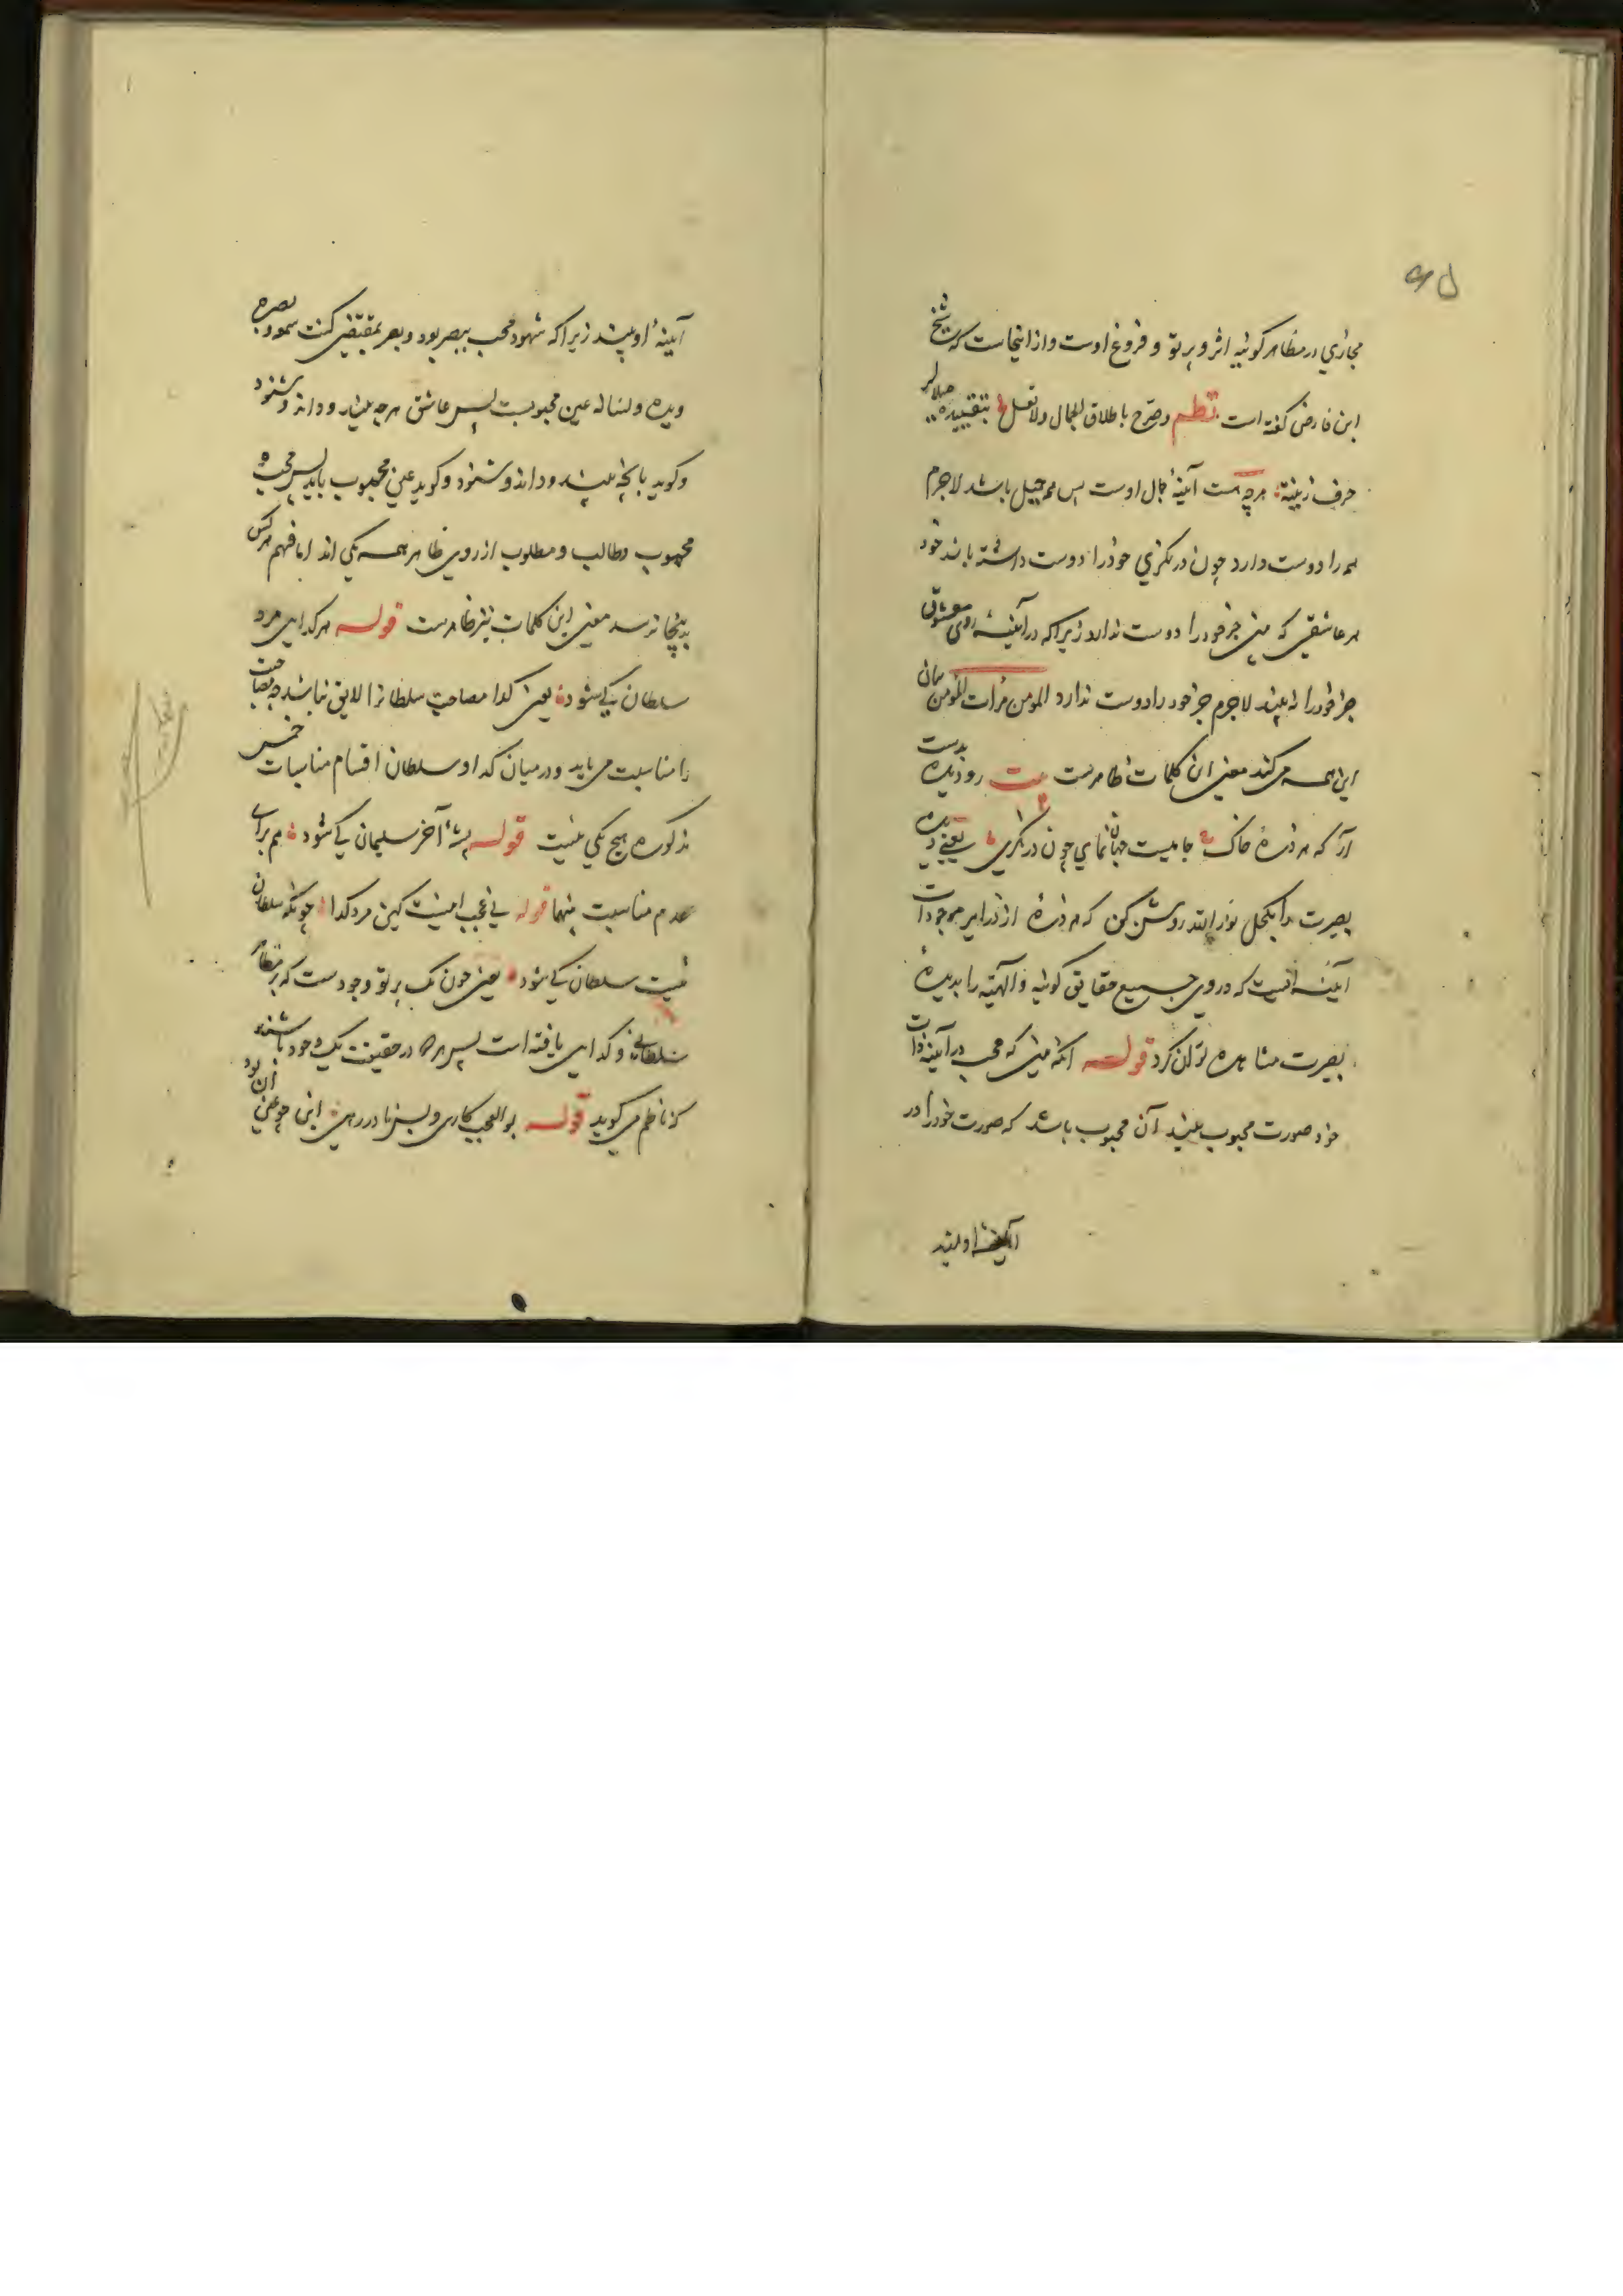 ۶۵
مجازی در مظاهر کونیه اثر و پرتو و فروغ اوست و از اینجاست که شیخ
ابن فارض گفته است نظم وصرّح باطلاق الجمال ولا تقل بتقییده میلا لز
خرف زینة هرچه هست آینهٔ جمال اوست پس همه جمیل باشد لاجرم
همه را دوست دارد چون در نگری خود را دوست داشته باشد خود
هر عاشقی که بینی جز خود را دوست ندارد زیرا که در آینهٔ روی معشوق
جز خود را نه بیند لاجرم جز خود را دوست ندارد المومن مرأت المومن بیان
این همه می کند معنی این کلمات ظاهرست بیت رو دیده بدست
آر که هر ذرهٔ خاک جامیست جهان نمای چون در نگری یعنی دیده
بصیرت را بکحل نور الله روشن کن که هر ذرهٔ از ذرایر موجودات
آینه ایست که در وی جمیع حقایق کونیه و الهیّه را بدیدهٔ
بصیرت مشاهده توان کرد قوله آنکه بینی که محب در آینهٔ ذات
خود صورت محبوب بیند آن محبوب باشد که صورت خود را در
آینهٔ او بیند
آینهٔ او بیند زیرا که شهود محب ببصر بود و بصر بمقتضی کنت سمعه و بصره
ویده ولسانه عین محبوبست پس عاشق هرچه بیند و داند و شنود
و گوید بانچه بیند و داند و شنود و گوید عین محبوب باید پس محب و
محبوب و طالب و مطلوب از روی ظاهر همه یکی اند اما فهم هرکس
بدینجا نرسد معنی این کلمات نیز ظاهرست قوله هر گدایی مرد
سلطان کی شود یعنی گدا مصاحبت سلطانرا لایق نباشد چه مصاحبت
را مناسبت می باید و در میان گدا و سلطان اقسام مناسبات خمس
مذکوره هیچ یکی نیست قوله پشهٔ آخر سلیمان کی شود هم برای
عدم مناسبت بینهما قوله نی عجب اینست کین مرد گدا چونکه سلطان
نیست سلطان کی شود یعنی چون یک پرتو وجودست که بر مظاهر
سلطانی و گدایی یافته است پس هر دو در حقیقت یک وجود باشند
که ناظم می گوید قوله بوالعجب کاری و بس نادر رهی این چو عین آن بود